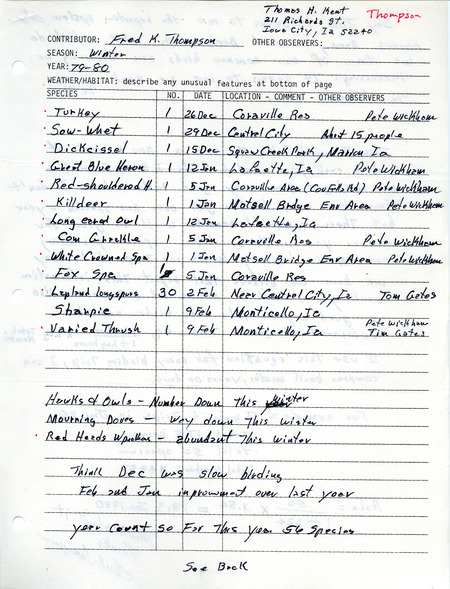 Thomas H. Kent
211 Richards St.
Iowa City, Ia 52240
Thompson
CONTRIBUTOR: Fred K. Thompson
OTHER OBSERVERS:
SEASON: Winter
YEAR: 79-80
WEATHER/HABITAT: describe any unusual features at bottom of page
SPECIES NO. DATE LOCATION - COMMENT - OTHER OBSERVERS
Turkey 1 26 Dec Coraville Res Pete Wickham
Saw-Whet 1 29 Dec Central City About 15 people
Dickcissel 1 15 Dec Squaw Creek Park, Marion Ia
Great Blue Heron 1 12 Jan Lafaette, Ia Pete Wickham
Red-shouldered H. 1 5 Jan Corville Area (Cou Falls Rd) Pete Wickham
Killdeer 1 1 Jan Matsell Bridge Env Area Pete Wickham
Long eared Owl 1 12 Jan Lafaette, Ia
Com Grackle 1 5 Jan Coraville Res Pete Wickham
White Crowned Spa 1 1 Jan Matsell Bridge Env Area Pete Wickham
Fox Spa 5 Jan Coraville Res
Lapland longspurs 30 2 Feb Near Central City, Ia Tom Gates
Sharpie 1 9 Feb Monticello, Ia
Varied Thrush 1 9 Feb Monticello, Ia Pete Wickham
Tim Gates
Hawks & Owls - Number Down This Winter
Mourning Doves - Way down This winter
Red Heads Wpeckers - abundant This winter
Think Dec was slow birding
Feb and Jan improvment over last year
year Count so For This Year 56 Species
See Back